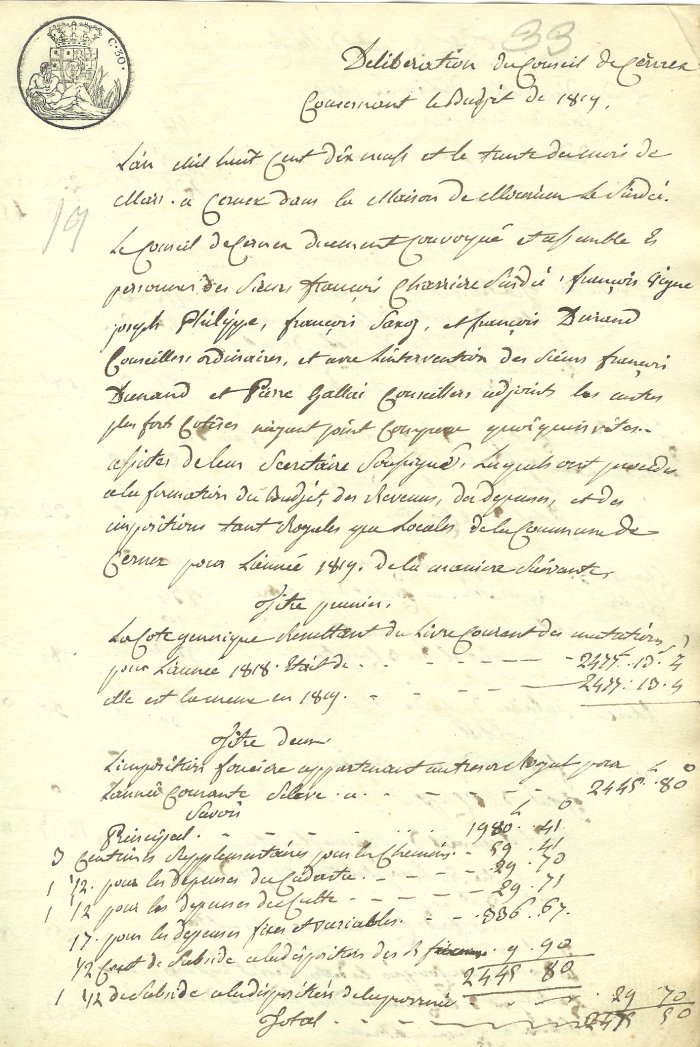 C. 30.
33
Déliberation du Conseil de Cernex
Concernant le Budjèt de 1819.
L'an mil huit Cent dix neuf et le trente du mois de
Mars. a Cernex dans la Maison de Monsieur Le Sindic.
19
Le Conseil de Cernex duement Convoqué et assemblé Es
personnes des Sieurs françois Charriere Sindic, françois Vigne
joseph Philippe, françois Saxoz, et françois Durand
Conseillers ordinaires, et avec L'intervention des Sieurs françois
Dunand et Pierre Gallai Conseillers adjoints les autres
plus forts Cotisés n'ayant point Comparu quoique invités.
assistés de leur Secretaire Soussigné, Lesquels ont procedés
a la formation du Budjèt, des Revenus, des depenses, et des
impositions tant Royales que Locales de la Commune de
Cernex pour L'année 1819. de la maniere Suivante,
Titre premier.
La Cote generique Resultant du Livre Courant des mutations
pour L'année 1818. Etait de - - - - 2477. 13. 4
elle est la meme en 1819. - - - 2477. 13. 4
Titre deux
L'imposition fonciere appartenant au tresor Royal pour
L'année Courante S'eleve a - - - - - 2445. 80
Savoir
Principal. - - - - - 1980. 41
3 Centimes Supplementaires pour les Chemins - 59. 41
1 1/2. pour les depenses du Cadastre. - - - 29. 70
1 1/2 pour les depenses du Culte. - - - 29. 71
17. pour les depenses fixes et variables. - - 336. 67.
1/2 Cent de Subside a la disposition des R. finances. 9. 90
2445 80
1 1/2 de Subside a la disposition de la province - - - 29 70
Total - - - - 2475 50